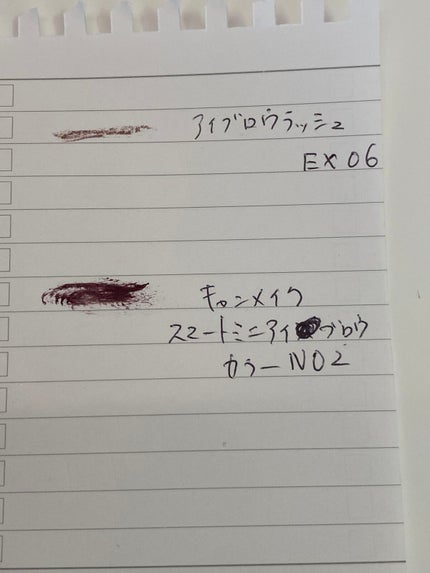 アイブロウラッシュ
EX 06
キャンメイク
スマートミニアイブロウ
カラー NO2